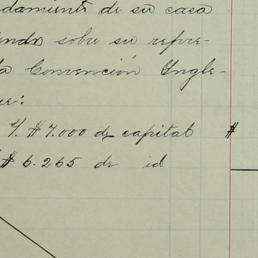 damiento de su casa
endo sobre su repre-
la Convención Ingle-
ue:
$ 7.000 de capital $
$ 6.265 de id